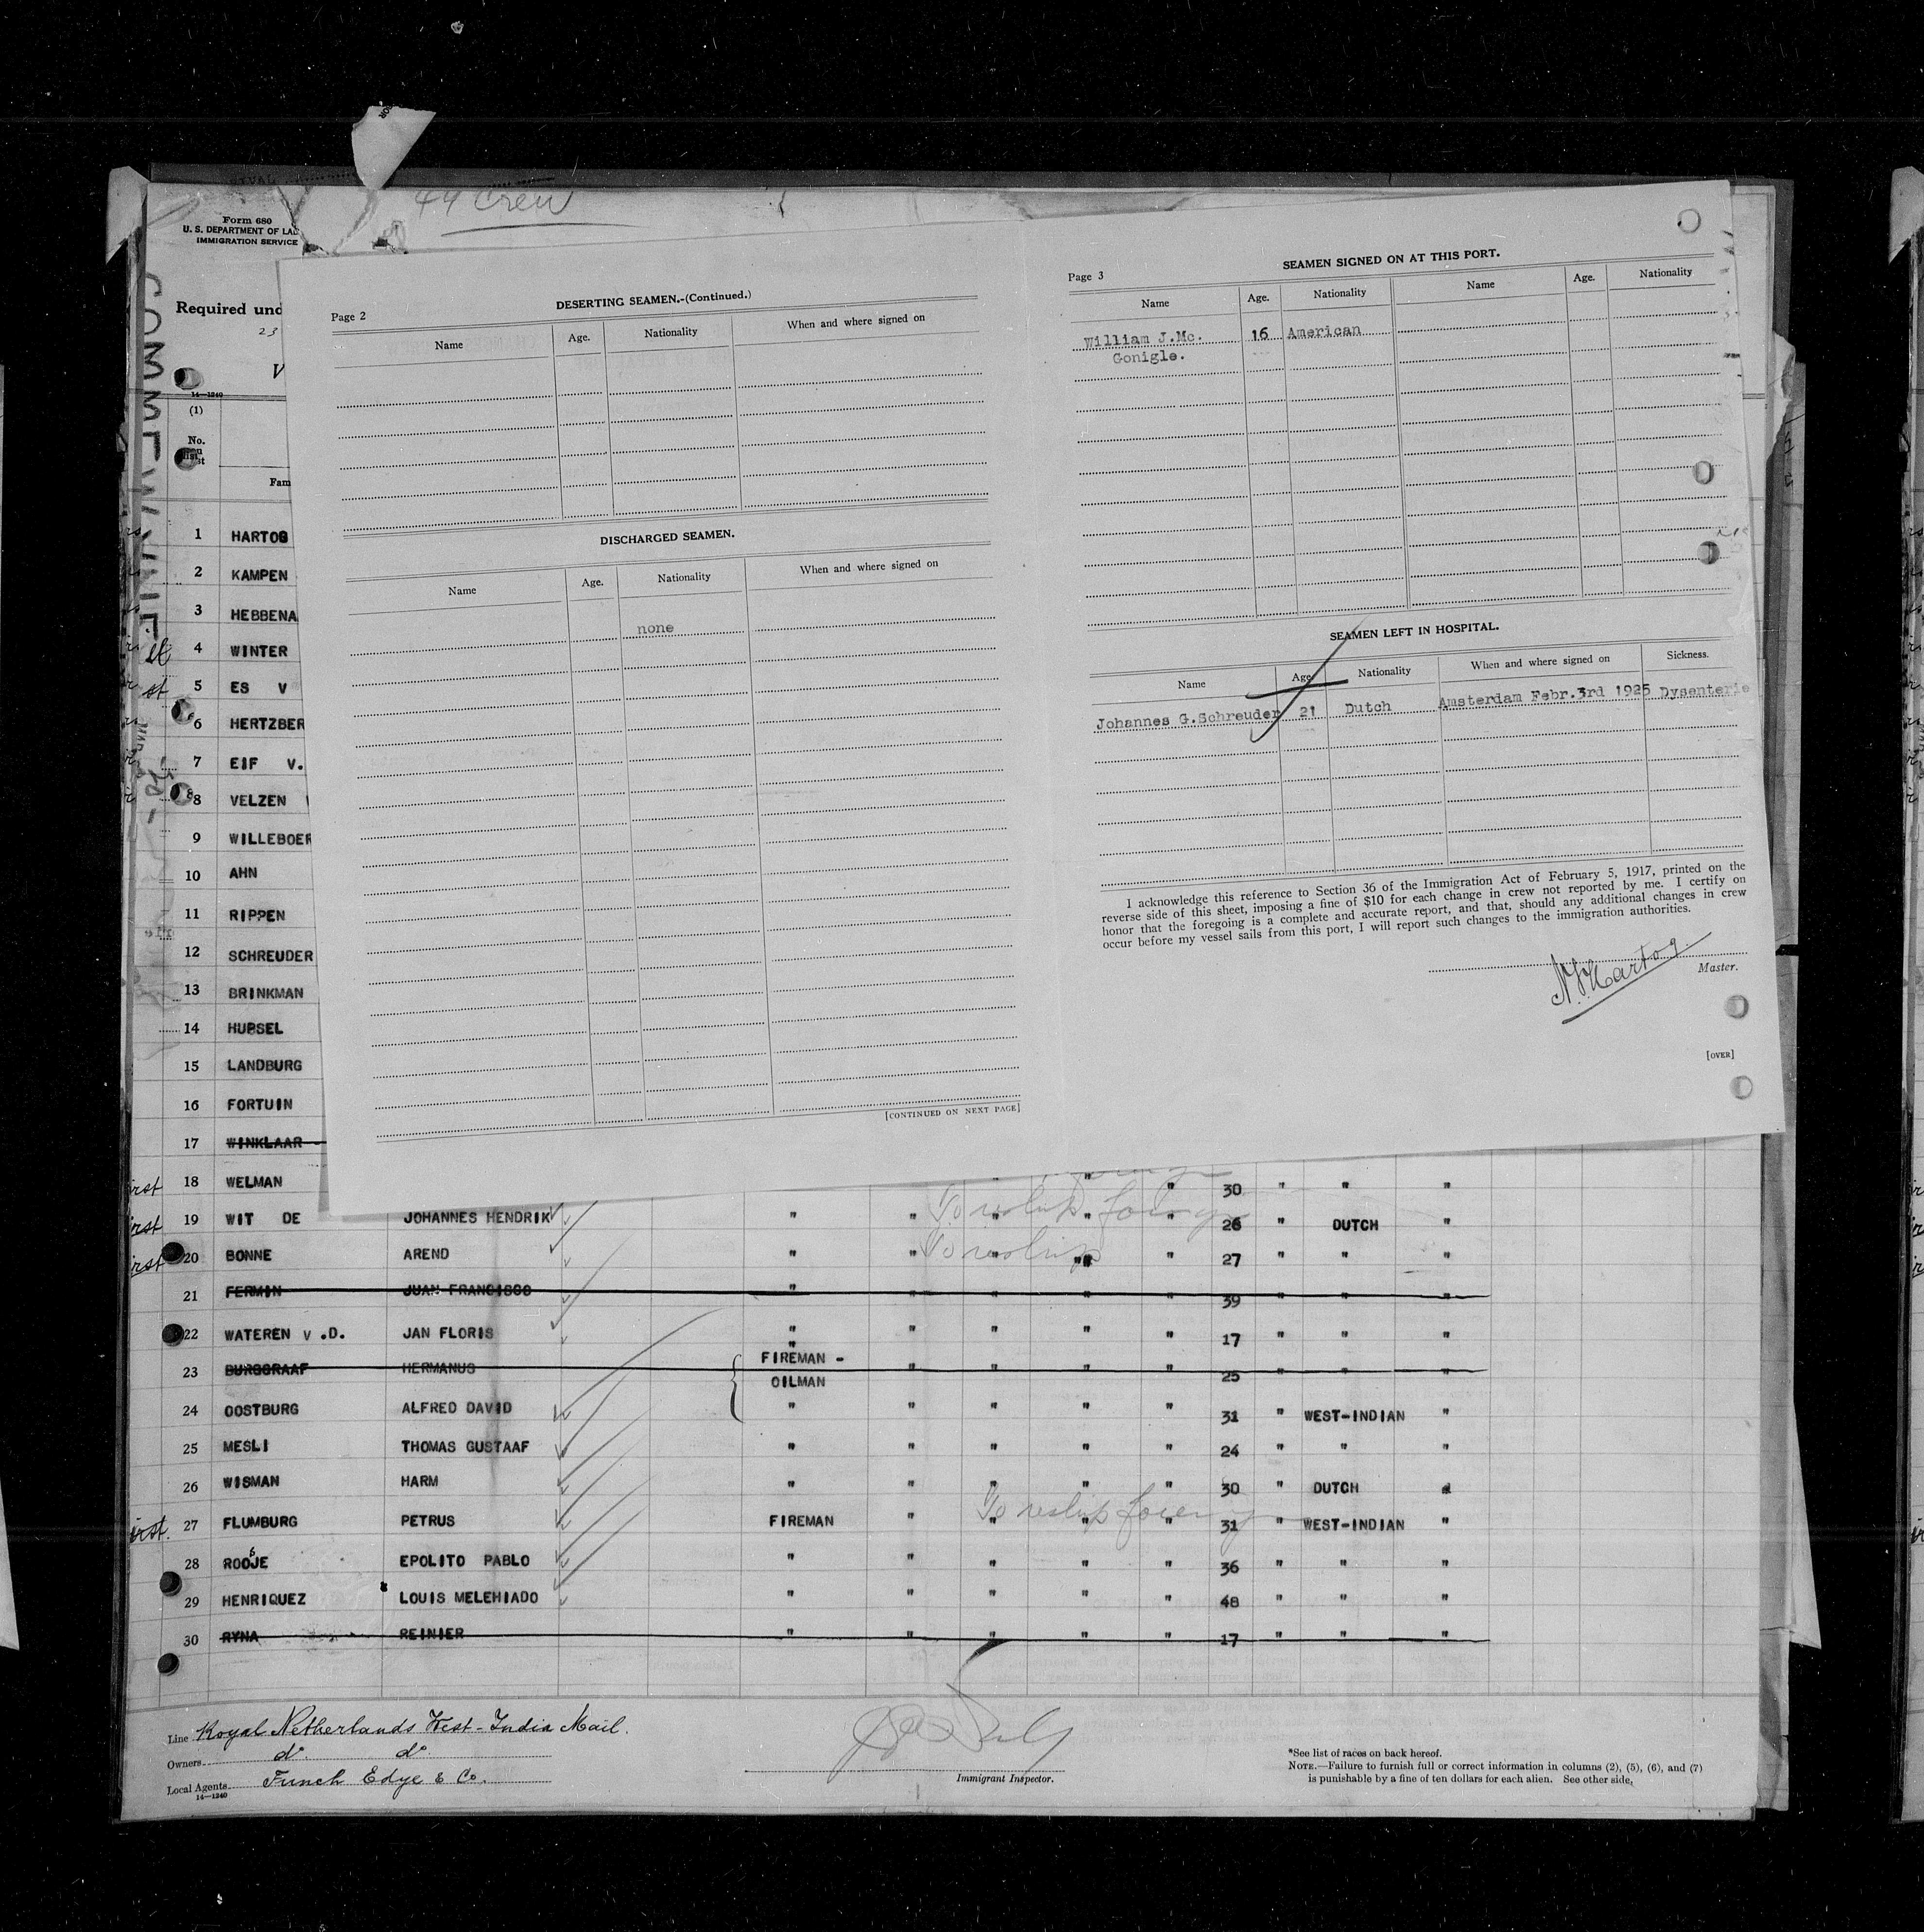 44 Crew
Form 680
U. S. DEPARTMENT OF LA
IMMIGRATION SERVICE
Required und
23
V
14—1240
(1)
No.
on
list
Fam
1 HARTOG
2 KAMPEN
3 HEBBENA
4 WINTER
5 ES V
6 HERTZBER
7 EIF V.
8 VELZEN
9 WILLEBOER
10 AHN
11 RIPPEN
12 SCHREUDER
13 BRINKMAN
14 HUPSEL
15 LANDBURG
16 FORTUIN
17 WINKLAAR
18 WELMAN " " 30 " " "
19 WIT DE JOHANNES HENDRIK " " " " " 26 " DUTCH "
To reship foreign
20 BONNE AREND " " " " " 27 " " "
To reship
21 FERMIN JUAN FRANCISCO " " " " " 39 " " "
22 WATEREN V.D. JAN FLORIS " " " " " 17 " " "
23 BURGGRAAF HERMANUS FIREMAN - OILMAN " " " " 25 " " "
24 OOSTBURG ALFRED DAVID " " " " " 31 " WEST-INDIAN "
25 MESLI THOMAS GUSTAAF " " " " " 24 " " "
26 WISMAN HARM " " " " " 30 " DUTCH "
27 FLUMBURG PETRUS FIREMAN " " " " 31 " WEST-INDIAN "
To reship foreign
28 ROOJE EPOLITO PABLO " " " " " 36 " " "
29 HENRIQUEZ LOUIS MELEHIADO " " " " " 48 " " "
30 RYNA REINIER " " " " " 17 " " "
Line Royal Netherlands West-India Mail.
Owners do. do.
Local Agents Funch Edye & Co.
14—1240
Immigrant Inspector.
*See list of races on back hereof.
NOTE.—Failure to furnish full or correct information in columns (2), (5), (6), and (7)
is punishable by a fine of ten dollars for each alien. See other side.
Page 2
DESERTING SEAMEN.-(Continued.)
Name Age. Nationality When and where signed on
DISCHARGED SEAMEN.
Name Age. Nationality When and where signed on
none
[CONTINUED ON NEXT PAGE]
Page 3
SEAMEN SIGNED ON AT THIS PORT.
Name Age. Nationality Name Age. Nationality
William J.Mc. 16 American
Gonigle.
SEAMEN LEFT IN HOSPITAL.
Name Age. Nationality When and where signed on Sickness.
Johannes G.Schreuder 21 Dutch Amsterdam Febr.3rd 1925 Dysenterie
I acknowledge this reference to Section 36 of the Immigration Act of February 5, 1917, printed on the
reverse side of this sheet, imposing a fine of $10 for each change in crew not reported by me. I certify on
honor that the foregoing is a complete and accurate report, and that, should any additional changes in crew
occur before my vessel sails from this port, I will report such changes to the immigration authorities.
Hartog
Master.
[OVER]